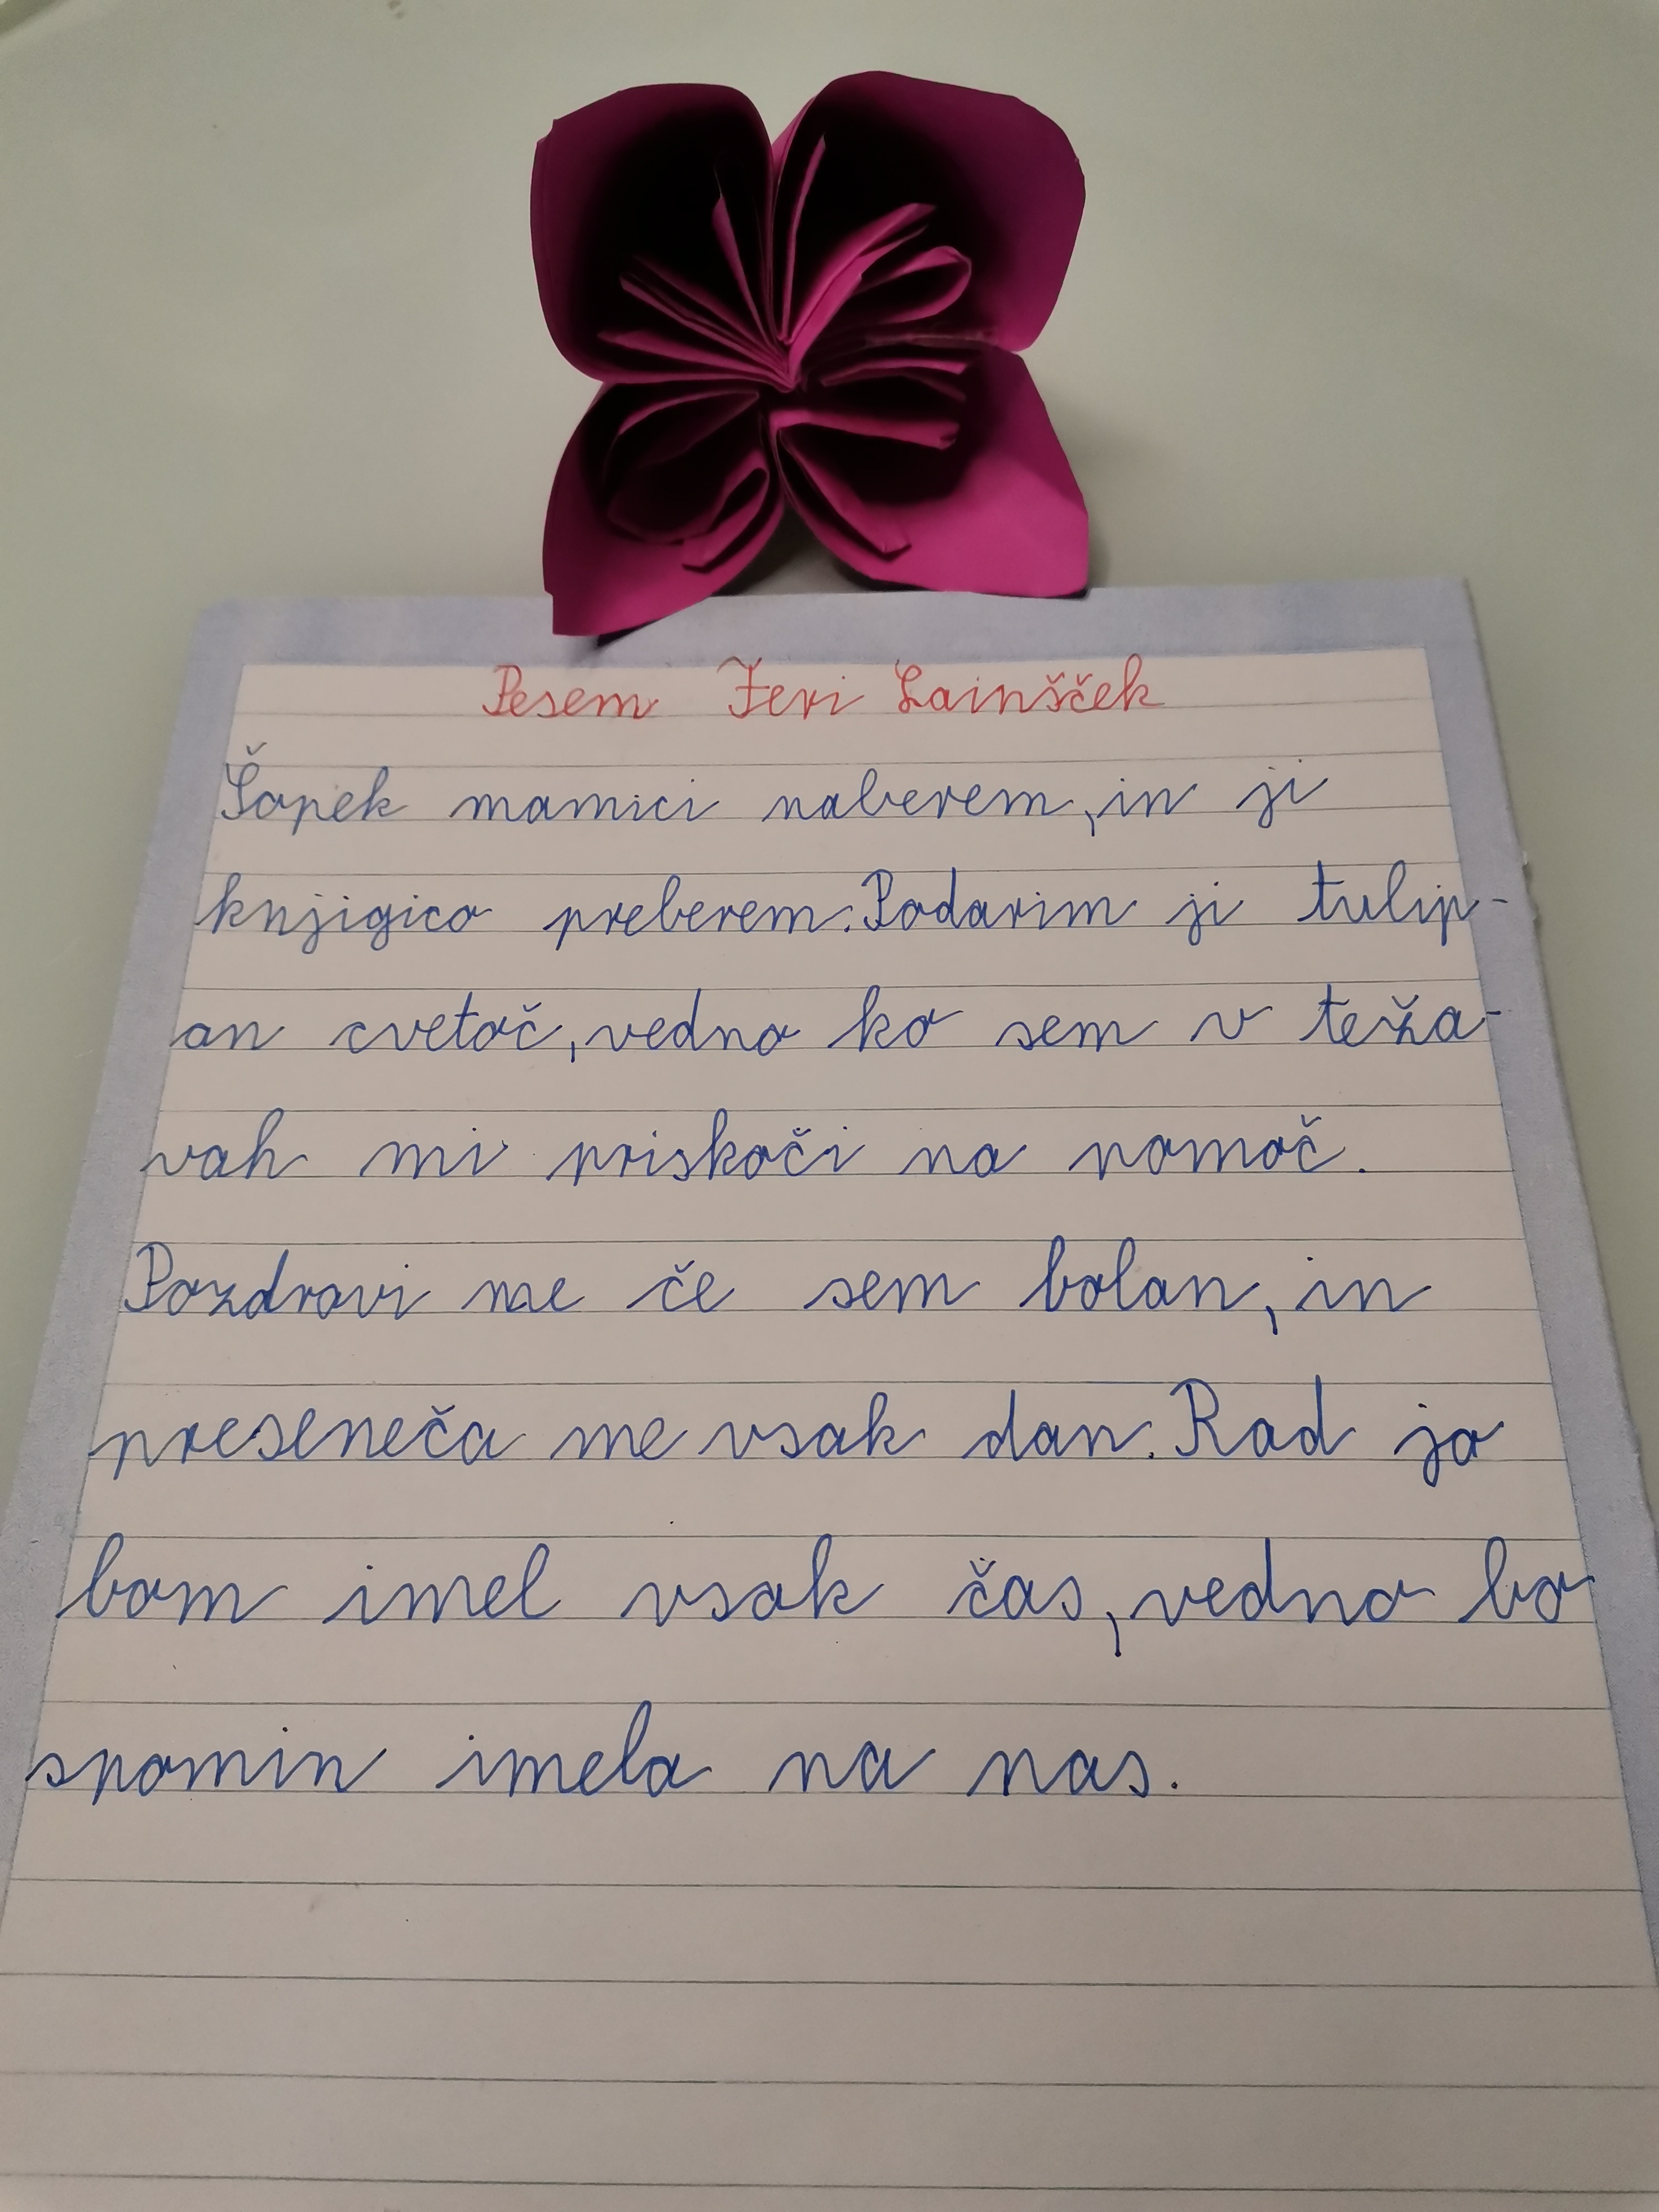 Pesem Feri Lainšček
Šopek mamici naberem, in ji
knjigico preberem. Podarim ji tulip-
an cvetoč, vedno ko sem v teža-
vah mi priskoči na pomoč.
Pozdravi me če sem bolan, in
preseneča me vsak dan. Rad jo
bom imel vsak čas, vedno bo
spomin imela na nas.